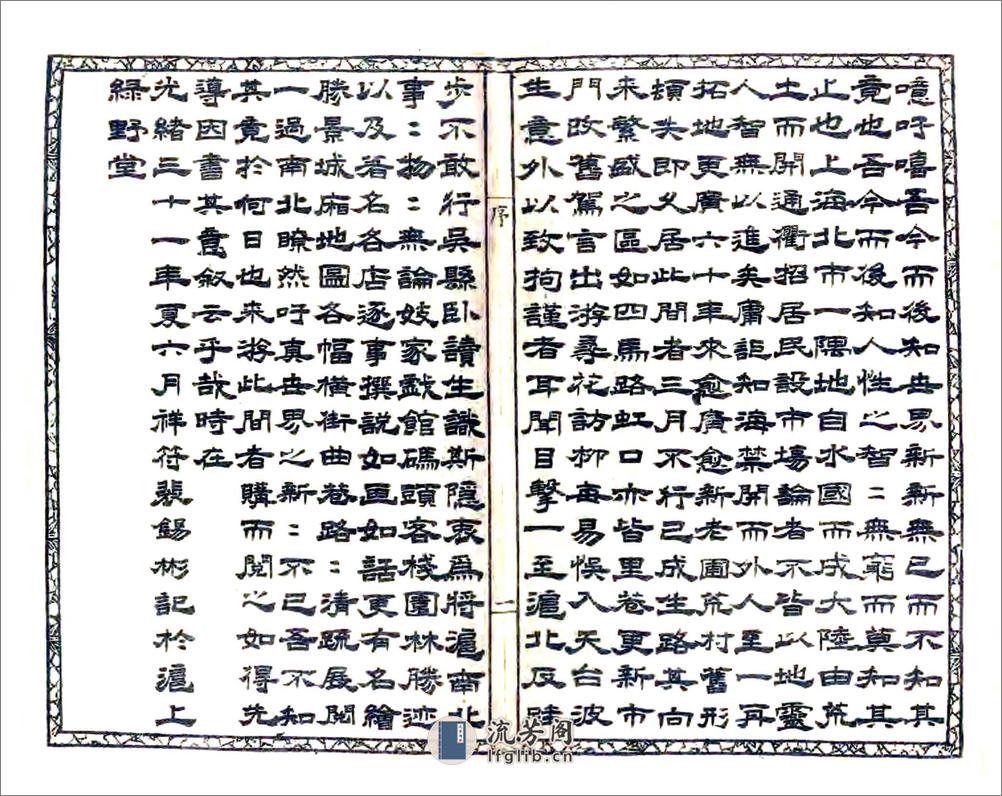 噫吁嘻吾今而後知世界新新無已而不知其
竟也吾今而後知人性之智〻無窮而莫知其
止也上海北市一隅地自水國而成大陸由荒
土而開通衢招居民設市場論者不皆以地靈
人智無以進矣庸詎知海禁開而外人至一再
拓地更廣六十年來愈廣愈新老圃荒村舊形
頓失即久居此間者三月不行已成生路其向
来繁盛之區如四馬路虹口亦皆里巷更新市
門改舊駕言出游尋花訪柳每易悞入天台波
生意外以致拘謹者耳聞目擊一至滬北反跬
序
一
步不敢行吳縣卧讀生識斯隱衷為將滬南北
事〻物〻無論妓家戲館碼頭客棧園林勝迹
以及著名各店逐事撰說如畫如話更有名繪
勝景城廂地圖各幅橫街曲巷路〻清疏展閱
一過南北瞭然吁真世界之新〻不已吾不知
其竟於何日也来游此間者購而閱之如得先
導因書其意叙云乎哉時在
光緒三十一年夏六月祥符裴錫彬記於滬上
綠野堂
流芳阁
lfglib.cn